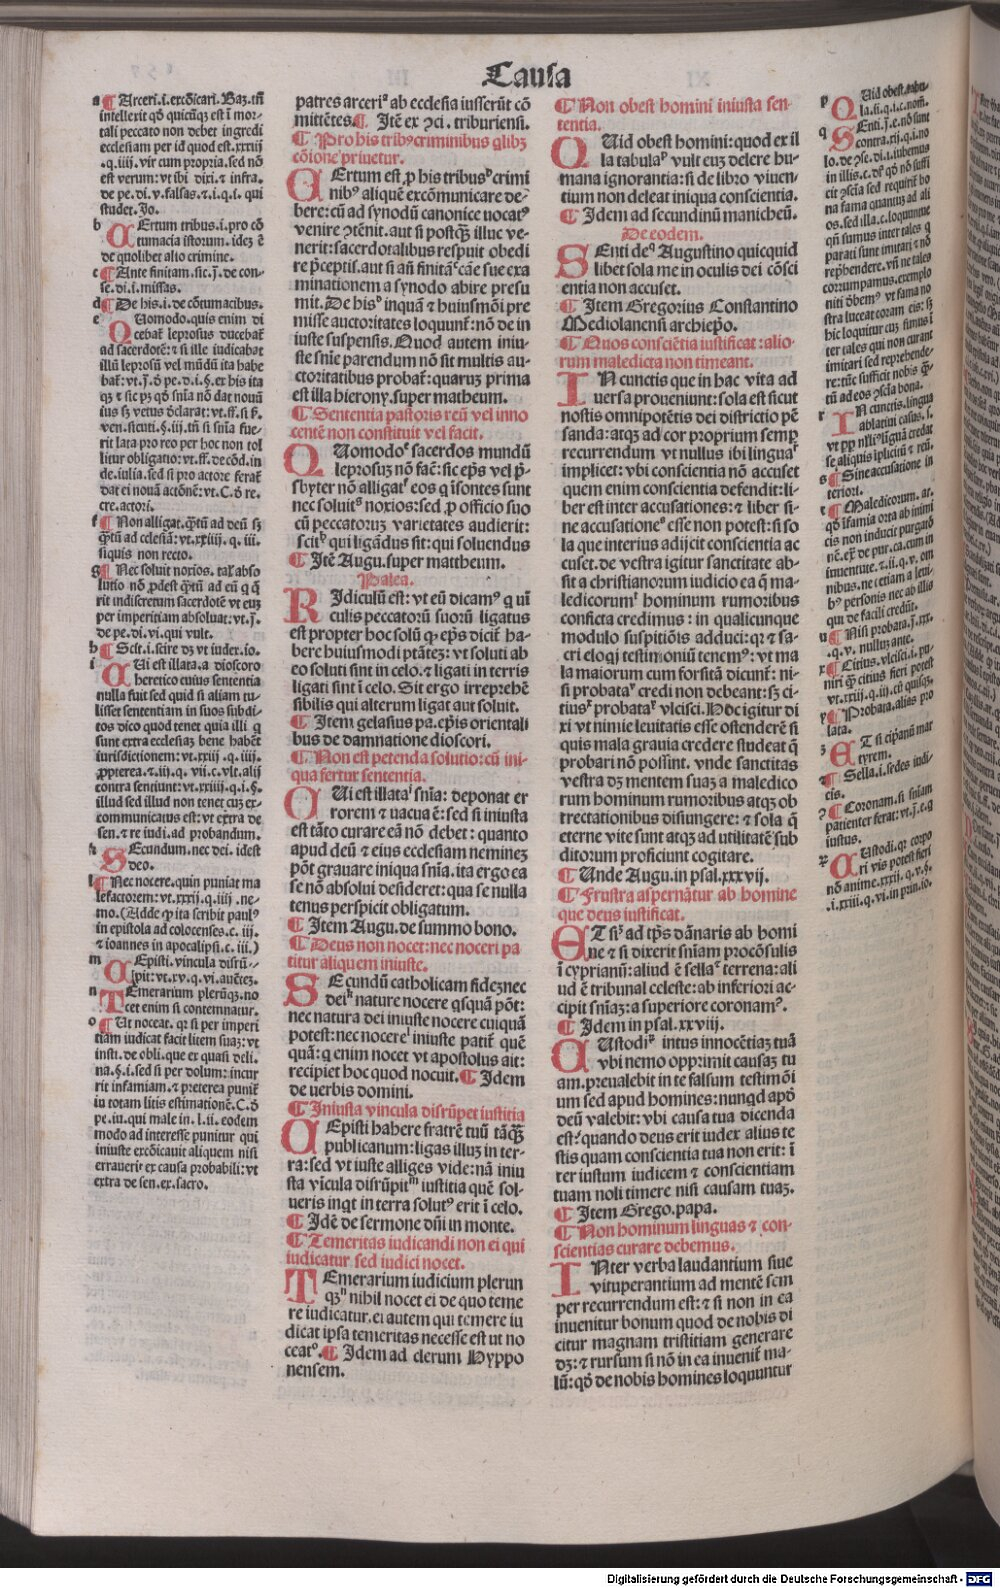 Causa
a ¶ Arceri.i.excōicari. Baz.tn̄
intellexit qđ quicūq̨ est ī mor-
tali peccato non debet ingredi
ecclesiam per id quod est.xxxiij
.q.iiij. vir cum propria.sed nō
est verum: vt ibi dixi. ⁊ infra.
de pe.di.v.falsas. ⁊.i.q.i. qui
studet. Jo.
b CErtum tribus.i.pro cō
tumacia istorum. idez ē
de quolibet alio crimine.
c ¶ Ante finitam.sic.j̄.de con-
se.di.i.missas.
d ¶ De his.i.de cōtumacibus.
e QUomodo.quis enim di
cebat leprosus ducebat̉
ad sacerdotē: ⁊ si ille iudicabat
illū leprosū vel mūdū ita habe
bat̉: vt.j̄.đ pe.di.i.§.ex his ita
nen.sicuti.§.iij.tn̄ si snīa fue-
rit lata pro reo per hoc non tol
litur obligatio: vt.ff.de cōd.in
de.iulia.sed si pro actore ferat̉
dat ei nouā actōnē: vt.C.đ re.
cre.actori.
f ¶ Non alligat.q̄tū ad deū sꝫ
q̄tū ad ecclesiā: vt.xxiiij. q. iii.
siquis non recto.
g ¶ Nec soluit noxios. talꝭ abso
lutio nō ꝓdest q̄tū ad eū q̨ q̄
rit indiscretum sacerdotē vt euꝫ
per imperitiam absoluat: vt.j̄.
de pe.di.vi.qui vult.
h ¶ Scit.i.scire dꝫ vt iudex.io.
i CUi est illata.a dioscoro
heretico cuius sententia
nulla fuit sed quid si aliam tu-
lisset sententiam in suos subdi-
tos dico quod tenet quia illi q̨
sunt extra ecclesiaꝫ bene habēt
iurisdictionem: vt.xxiij. q. iiij.
ꝓpterea.⁊.iij.q. vii.c.vlt.alij
contra sentiunt: vt.xxiiij.q.i.§.
illud sed illud non tenet cuꝫ ex-
communicatus est: vt extra de
sen.⁊ re iudi.ad probandum.
k SEcundum.nec dei. idest
deo.
l ¶ Nec nocere.quin puniat ma
lefactorem: vt.xxiij.q.iiij .ne-
mo.(Adde ꝙ ita scribit paulꝰ
in epistola ad colocenses.c. iij.
⁊ ioannes in apocalipsi.c. iii.)
m CEpisti.vincula disrū-
pit: vt.xv.q.vi.auētez.
n TEmerarium plerūqꝫ.no
cet enim si contemnatur.
o ¶ Ut noceat. qꝛ si per imperi
tiam iudicat facit litem suaꝫ: vt
insti. de obli.que ex quasi deli.
na.§.i.sed si per dolum: incur
rit infamiam.⁊ preterea punit̉
iu totam litis estimationē.C.đ
pe.iu.qui male in.l.ii. eodem
modo ad interesse punitur qui
iniuste excōicauit aliquem nisi
errauerit ex causa probabili: vt
extra de sen.ex.sacro.
patres arceriᵃ ab ecclesia iusserūt cō
mittētes. ¶ Jtē ex ꝯci. triburiensi.
¶ Pro his tribꝰ criminibus q̄libꝫ
cōione priuetur.
CErtum est ꝓ his tribusᵇ crimi
nibꝰ aliquē excōmunicare de-
bere: cū ad synodū canonice uocatꝰ
venire ꝯtēnit. aut si postq̄ꝫ illuc ve-
nerit: sacerdotalibus respuit obedi
re p̄ceptis. aut si añ finitāᶜ cāe sue exa
minationem a synodo abire presu
mit. De hisᵈ inquā ⁊ huiusmōi pre
misse auctoritates loquunt̉: nō de in
iuste suspensis. Quod autem iniu-
ste snīe parendum nō sit multis au-
ctoritatibus probat̉: quaruꝫ prima
est illa hierony. super matheum.
¶ Sententia pastoris reū vel inno
centē non constituit vel facit.
QUomodoᵉ sacerdos mundū
leprosuꝫ nō faē: sic ep̄s vel p̄-
sbyter nō alligatᶠ eos q̨ īsontes sunt
nec soluitᵍ noxios: sed ꝓ officio suo
cū peccatoruꝫ varietates audierit:
scitʰ qui ligādus sit: qui soluendus
¶ Jtē Augu. super mattheum.
Palea.
RJdiculū est: vt eū dicamꝰ q uī
culis peccatorū suorū ligatus
est propter hoc solū ꝙ ep̄s dicit̉ ha-
bere huiusmodi ptātez: vt soluti ab
eo soluti sint in celo. ⁊ ligati in terris
ligati sint ī celo. Sit ergo irreprehē
sibilis qui alterum ligat aut soluit.
¶ Jtem gelasius pa. ep̄is orientali
bus de damnatione dioscori.
¶ Non est petenda solutio: cū ini-
qua fertur sententia.
CUi est illataⁱ snīa: deponat er
rorem ⁊ uacua ē: sed si iniusta
est tāto curare eā nō debet: quanto
apud deū ⁊ eius ecclesiam neminez
pōt grauare iniqua snīa. ita ergo ea
se nō absolui desideret: qua se nulla
tenus perspicit obligatum.
¶ Jtem Augu. de summo bono.
¶ Deus non nocet: nec noceri pa
titur aliquem iniuste.
SEcundū catholicam fidez nec
deiᵏ nature nocere q̨squā pōt:
nec natura dei iniuste nocere cuiquā
potest: nec nocereˡ intus patit̉ quē
quā: q̨ enim nocet vt apostolus ait:
recipiet hoc quod nocuit. ¶ Jdem
de uerbis domini.
¶ Jniusta vincula disrūpet iustitia
CEpisti habere fratrē tuū tāqꝫ
publicanum: ligas illuꝫ in ter-
ra: sed vt iuste alliges vide: nā iniu
sta vīcula disrūpitᵐ iustitia quē sol-
ueris inqt in terra solutꝰ erit ī celo.
¶ Jdē de sermone dn̄i in monte.
¶ Temeritas iudicandi non ei qui
iudicatur sed iudici nocet.
TEmerarium iudicium plerun
qꝫⁿ nihil nocet ei de quo teme
re iudicatur. ei autem qui temere iu
dicat ipsa temeritas necesse est ut no
ceatᵒ. ¶ Jdem ad clerum Hyppo
nensem.
¶ Non obest homini iniusta sen-
tentia.
QUid obest homini: quod ex il
la tabulaᵖ vult euꝫ delere hu-
mana ignorantia: si de libro viuen-
tium non deleat iniqua conscientia.
¶ Jdem ad secundinū manicheū.
De eodem.
SEnti deᑫ Augustino quicquid
libet sola me in oculis dei cōsci
entia non accuset.
¶ Jtem Gregorius Constantino
Mediolanensi archiep̄o.
¶ Quos consciētia iustificat: alio-
rum maledicta non timeant.
IN cunctis que in hac vita ad
uersa proueniunt: sola est sicut
nostis omnipotētis dei districtio pē
sanda: atqꝫ ad cor proprium semꝑ
recurrendum vt nullus ibi linguaʳ
implicet: vbi conscientia nō accuset
quem enim conscientia defendit: li-
ber est inter accusationes: ⁊ liber si-
ne accusationeˢ esse non potest: si so
la que interius adijcit conscientia ac
cuset. de vestra igitur sanctitate ab-
sit a christianorum iudicio ea q̄ ma-
ledicorumᵗ hominum rumoribus
conficta credimus: in qualicunque
modulo suspitiōis adduci: qꝛ ⁊ sa-
cri elogj testimoniū tenemꝰ: vt ma
la maiorum cum forsitā dicunt̉: ni-
si probataᵘ credi non debeant: sꝫ ci-
tiusˣ probataʸ vlcisci. Hoc igitur di
xi vt nimie leuitatis esse ostenderē si
quis mala grauia credere studeat q̄
probari nō possīnt. vnde sanctitas
vestra dꝫ mentem suaꝫ a maledico
rum hominum rumoribus atqꝫ ob
trectationibus disiungere: ⁊ sola q̄
eterne vite sunt atqꝫ ad utilitatē sub
ditorum proficiunt cogitare.
¶ Unde Augu. in psal. xxxvij.
¶ Frustra aspernātur ab homine
que deus iustificat.
ET siᶻ ad tp̄s dānaris ab homi
ne ⁊ si dixerit snīam procōsulis
ī cyprianū: aliud ē sella terrena: ali
ud ē tribunal celeste: ab inferiori ac-
cipit snīaꝫ: a superiore coronam.
¶ Jdem in psal. xxviij.
CUstodi intus innocētiaꝫ tuā
vbi nemo opprimit causaꝫ tu
am. preualebit in te falsum testimōi
um sed apud homines: nunqd apđ
deū valebit: vbi causa tua dicenda
est: quando deus erit iudex alius te
stis quam conscientia tua non erit: ī
ter iustum iudicem ⁊ conscientiam
tuam noli timere nisi causam tuaꝫ.
¶ Jtem Grego. papa.
¶ Non hominum linguas ⁊ con-
scientias curare debemus.
INter verba laudantium siue
vituperantium ad mentē sem
per recurrendum est: ⁊ si non in ea
inuenitur bonum quod de nobis di
citur magnam tristitiam generare
dꝫ: ⁊ rursum si nō in ea inuenit̉ ma-
lū: qđ de nobis homines loquuntur
p QUid obest.tabu-
la.
q SEnti.j̄.e.nō sunt
contra.xij.q.i.no
lo.de ꝯse.di.i.iubemus
na fama quantuꝫ ad ali
os.sed illa.c.loquuntur
qn̄ sumus inter tales q̨
parati sunt imitari ⁊ nō
rep̄hendere. vn̄ ne tales
corrumpamus.exemplo
stra luceat coram eis: sꝫ
hic loquitur cuꝫ sumus ī
ter tales qui non curant
imitari sed reprehende-
tū ad eos ꝯscīa bona.
r IN cunctis.lingua
ablatiui casus. i.
se aliquis
s ¶ Sine accusatione in
teriori.
t ¶ Maledicorum. ar.
qđ īfamia orta ab inimi
cis non inducit purgatō
nē.ex̄.de pur.ca.cum in
iuuentute. ⁊.ii.q.v. om
nibus.
hꝰ personis nec ab illis
qui de facili credūt.
u ¶ Nisi probata.j̄.xx.
.q.v. nulluꝫ ante.
x ¶ Citius.vlcisci.i.pu-
niri q̄ citius fieri potest
vt.xxiij.q.iij.cū quisqꝫ.
y ¶ Probata.alias pro
lata.
z ET si cipriānū mar
tyrem.
¶ Sella.i.sedes iudi-
cis.
¶ Coronam.si snīam
patienter ferat: vt.j̄.e.q
iustus.
CUstodi.qꝛ corpo
ri vis potest fieri
nō anime.xxxij. q.v.§.
.i.xxiii.q.vi.in prin.io.
Digitalisierung gefördert durch die Deutsche Forschungsgemeinschaft - DFG